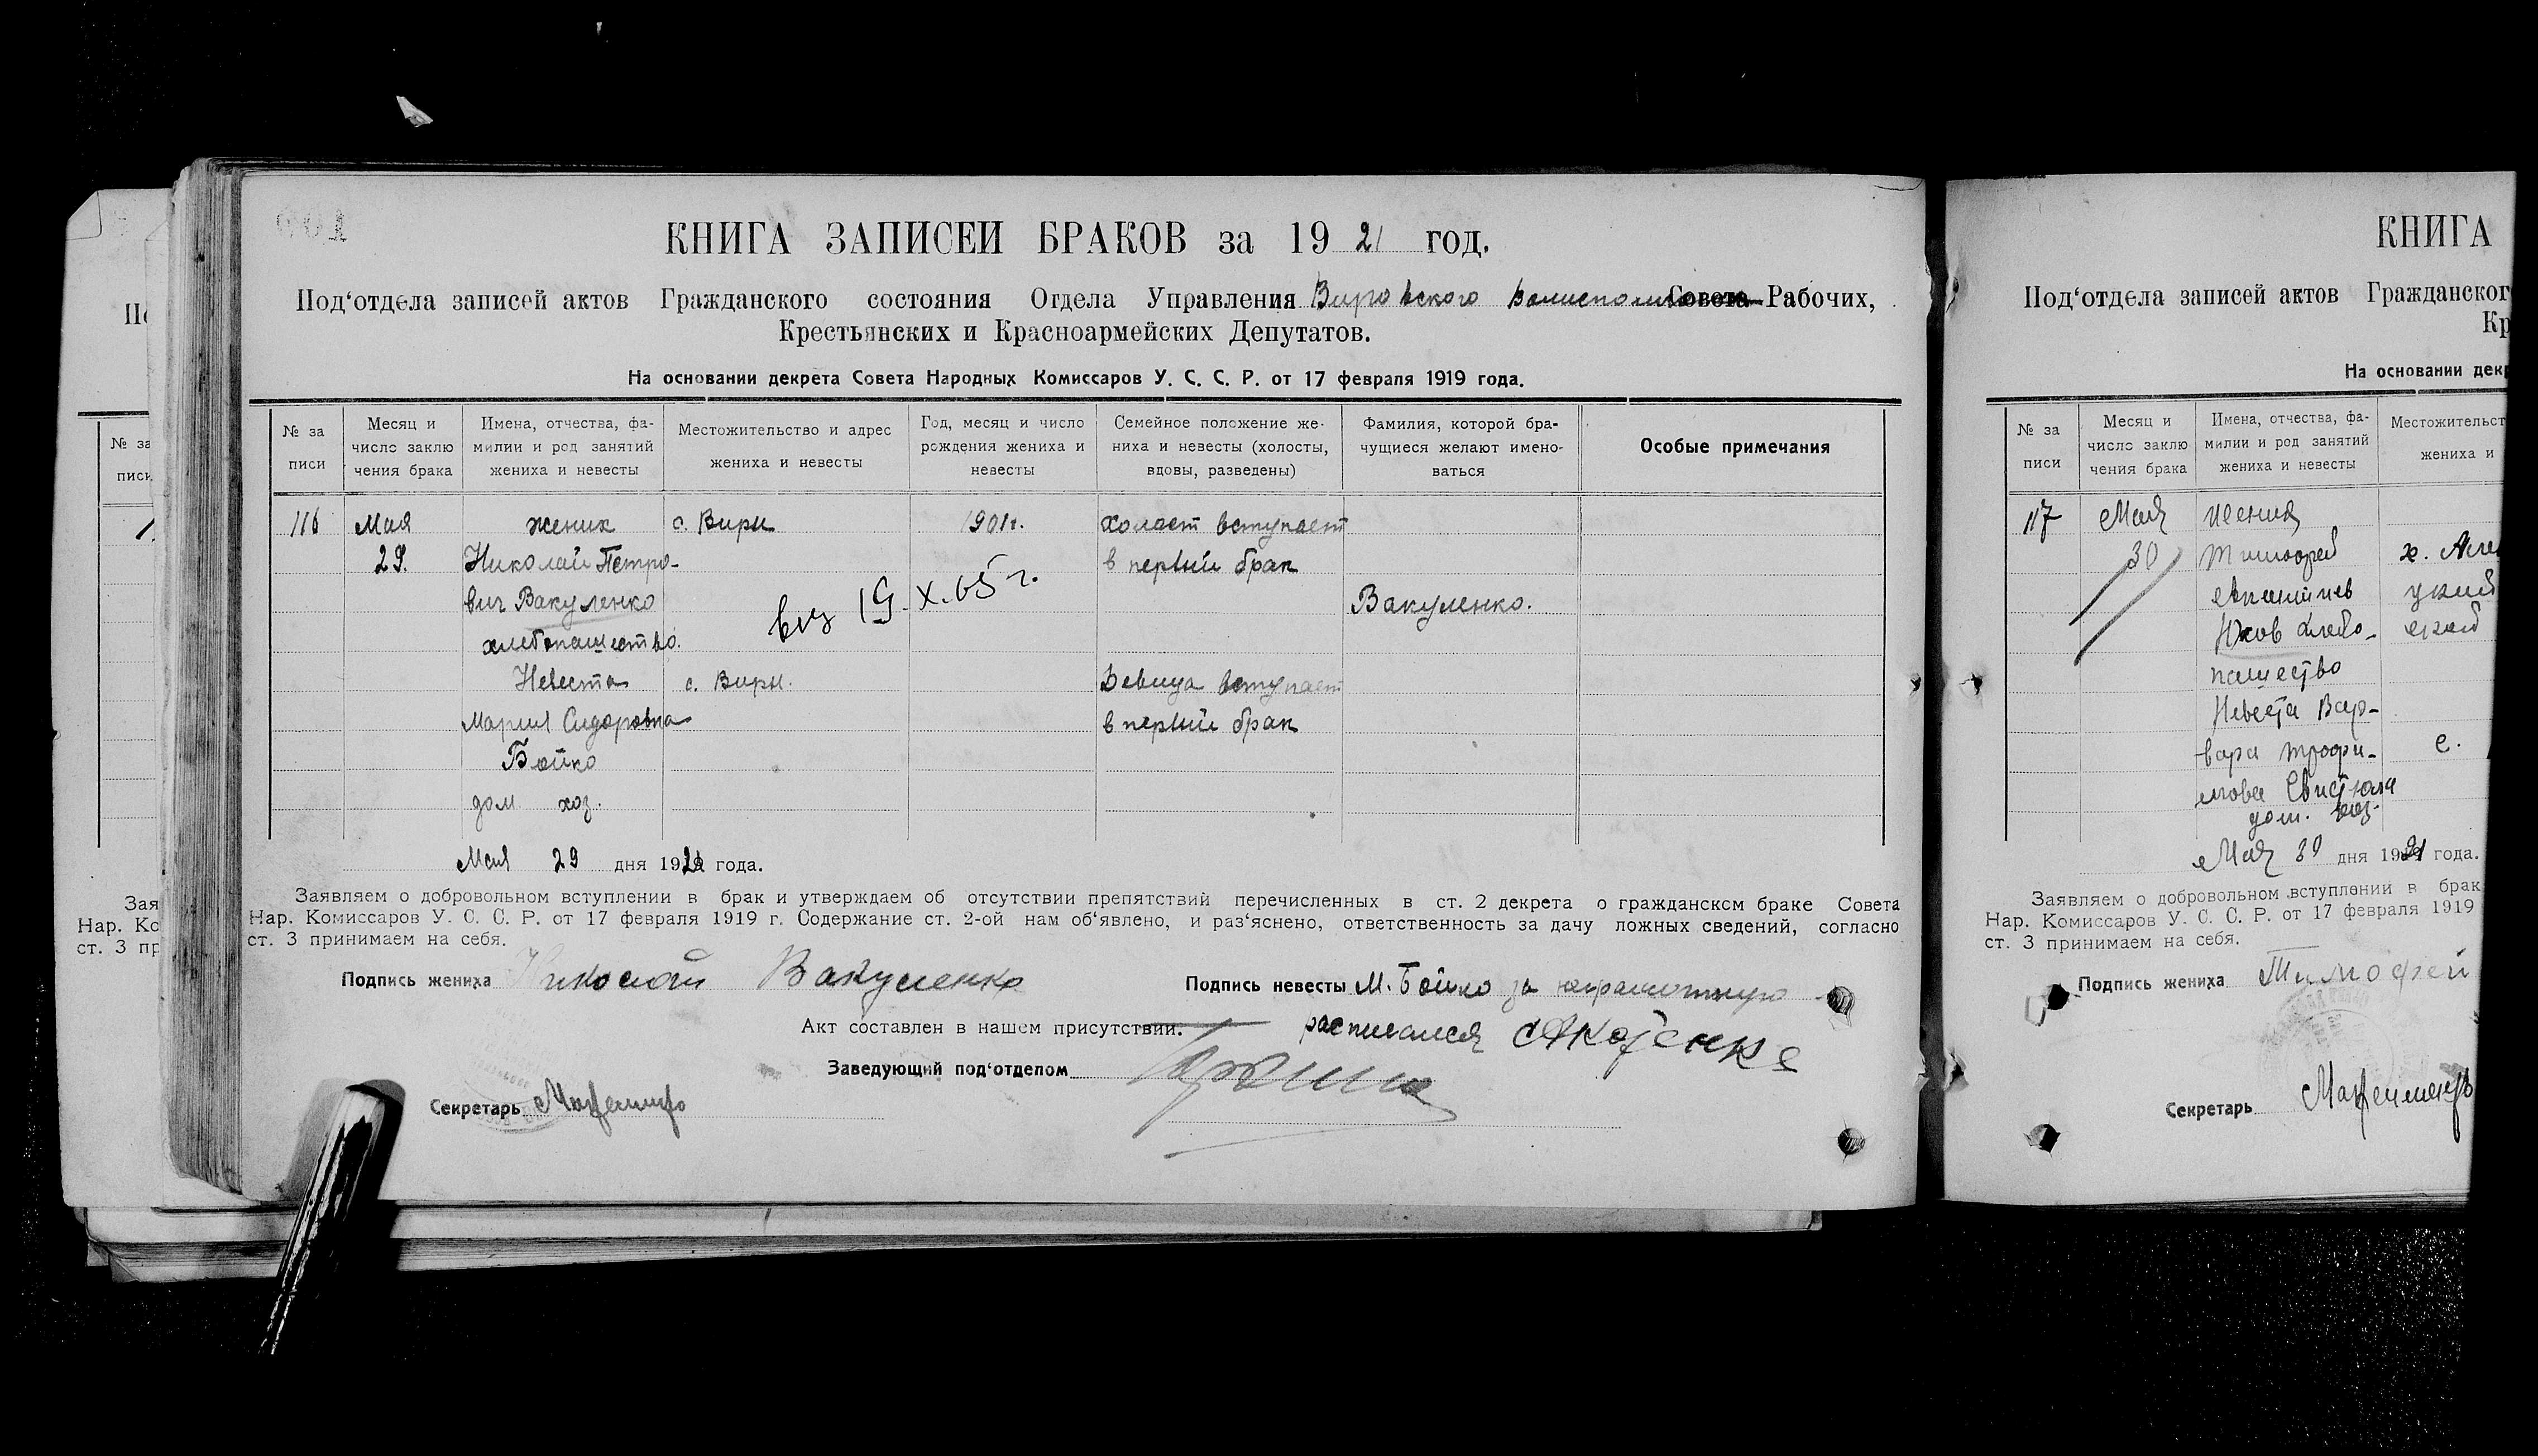 КНИГА ЗАПИСЕЙ БРАКОВ за 1921 год.
Под‘отдела записей актов Гражданского состояния Отдела Управления Вировского Волисполкома Совета Рабочих,
Крестьянских и Красноармейских Депутатов.
На основании декрета Совета Народных Комиссаров У. С. С. Р. от 17 февраля 1919 года.
№ за
писи
Месяц и
число заклю
чения брака
Имена, отчества, фа-
милии и род занятий
жениха и невесты
Местожительство и адрес
жениха и невесты
Год, месяц и число
рождения жениха и
невесты
Семейное положение же-
ниха и невесты (холосты,
вдовы, разведены)
Фамилия, которой бра-
чущиеся желают имено-
ваться
Особые примечания
116 Мая жених с. Виры 1901г. холост вступает
29. Николай Петро- в первый брак
вич Вакуленко Вакуленко.
19.X.65 г.
хлебопашество.
Невеста с. Виры. Девица вступает
Мария Сидоровна в первый брак
Бойко
дом хоз.
Мая 29 дня 1921 года.
Заявляем о добровольном вступлении в брак и утверждаем об отсутствии препятствий перечисленных в ст. 2 декрета о гражданском браке Совета
Нар. Комиссаров У. С. С. Р. от 17 февраля 1919 г. Содержание ст. 2-ой нам об‘явлено, и раз‘яснено, ответственность за дачу ложных сведений, согласно
ст. 3 принимаем на себя.
Подпись жениха Николай Вакуленко Подпись невесты М. Бойко за неграмотную
Акт составлен в нашем присутствии. расписался
Заведующий под‘отделом
Секретарь
КНИГА
Под‘отдела записей актов Гражданског
Кр
На основании декр
№ за
писи
Месяц и
число заклю
чения брака
Имена, отчества, фа-
милии и род занятий
жениха и невесты
Местожительст
жениха и
117 Мая жених
30 Тимофей х. Але
Хлебо-
пашество
Невеста Вар-
вара Трофи-
мовна
дом. хоз.
с.
Мая 30 дня 1921 года.
Заявляем о добровольном вступлении в брак
Нар. Комиссаров У. С. С. Р. от 17 февраля 1919
ст. 3 принимаем на себя.
Подпись жениха Тимофей
Секретарь
№ за
писи
Зая
Нар. Ко
ст. 3 пр